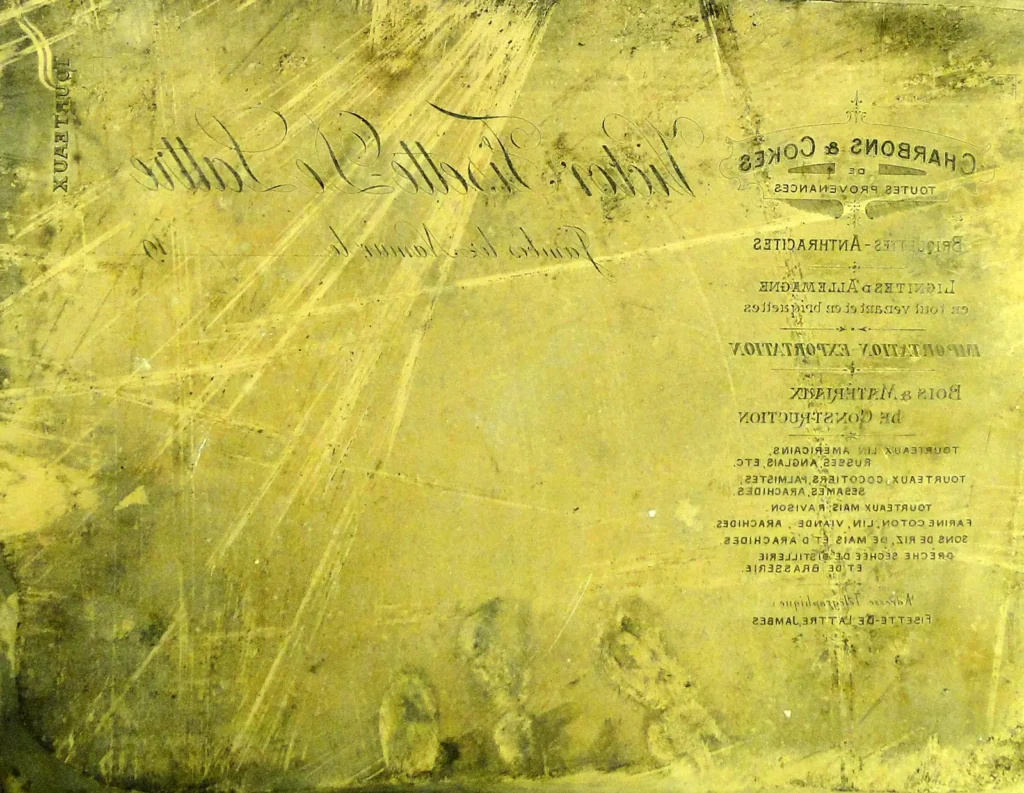 CHARBONS & COKES
DE
TOUTES PROVENANCES
BRIQUETTES-ANTHRACITES
LIGNITES D'ALLEMAGNE
en tout venant et en briquettes
IMPORTATION-EXPORTATION
BOIS & MATÉRIAUX
DE CONSTRUCTION
TOURTEAUX LIN AMÉRICAINS,
RUSSES, ANGLAIS, ETC.
TOURTEAUX, COCOTIERS, PALMISTES,
SESAMES, ARACHIDES.
TOURTEAUX MAIS, RAVISON.
FARINE COTON, LIN, VIANDE, ARACHIDES
SONS DE RIZ, DE MAIS ET D'ARACHIDES
DRÈCHE SÉCHÉE DE DISTILLERIE
ET DE BRASSERIE.
Adresse Télégraphique:
FISETTE-DE LATTRE, JAMBES
Victor Fisette-De Lattre
Jambes lez-Namur, le 19
TOURTEAUX